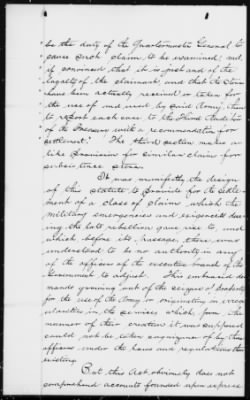 be the duty of the Quartermaster General to
cause such claim to be examined, and,
if convinced that it is just and of the
loyalty of the claimant, and that the stores
have been actually received or taken for
the use of and used by said Army, then
to report each case to the Third Auditor
of the Treasury with a recommendation for
settlement." The third section makes a
like provision for similar claims for
subsistence stores.
It was manifestly the design
of this statute to provide for the settle-
ment of a class of claims which the
military emergencies and exigencies dur-
ing the late rebellion gave rise to, and
which before its passage, there was
understood to be no authority in any
of the officers of the executive branch of the
Government to adjust. This embraced de-
mands growing out of the seizure of property
for the use of the Army or originating in irreg-
ularities in the service which, from the
manner of their creation it was supposed
could not be taken cognizance of by those
officers under the laws and regulations then
existing.
But this Act obviously does not
comprehend accounts founded upon express